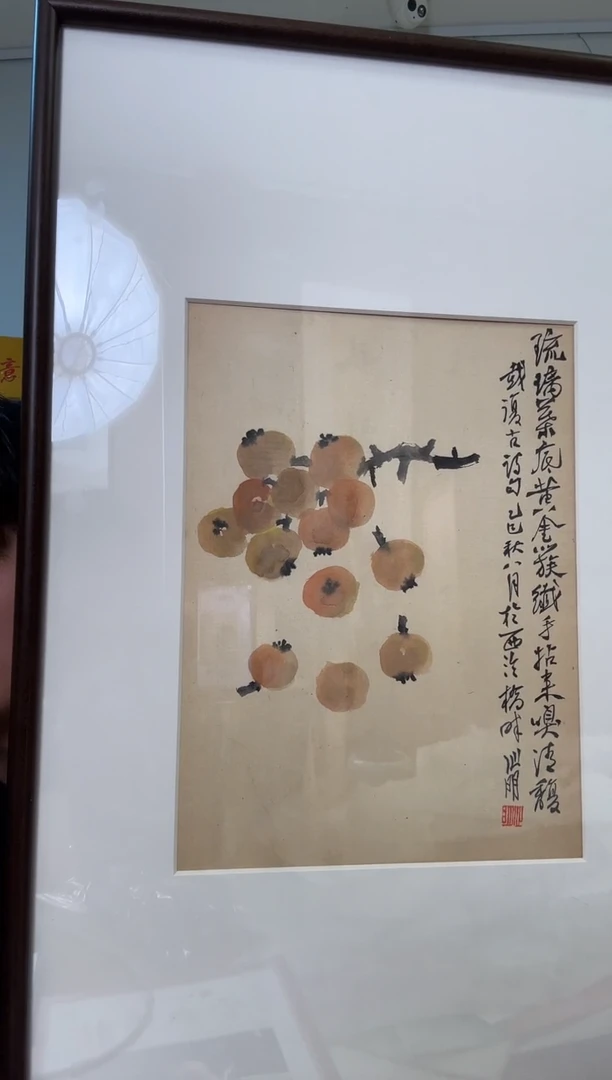 琉璃葉底黄金簇纖手拈来嗅清馥
戴復古詩句乙巳秋八月於西泠橋畔
意